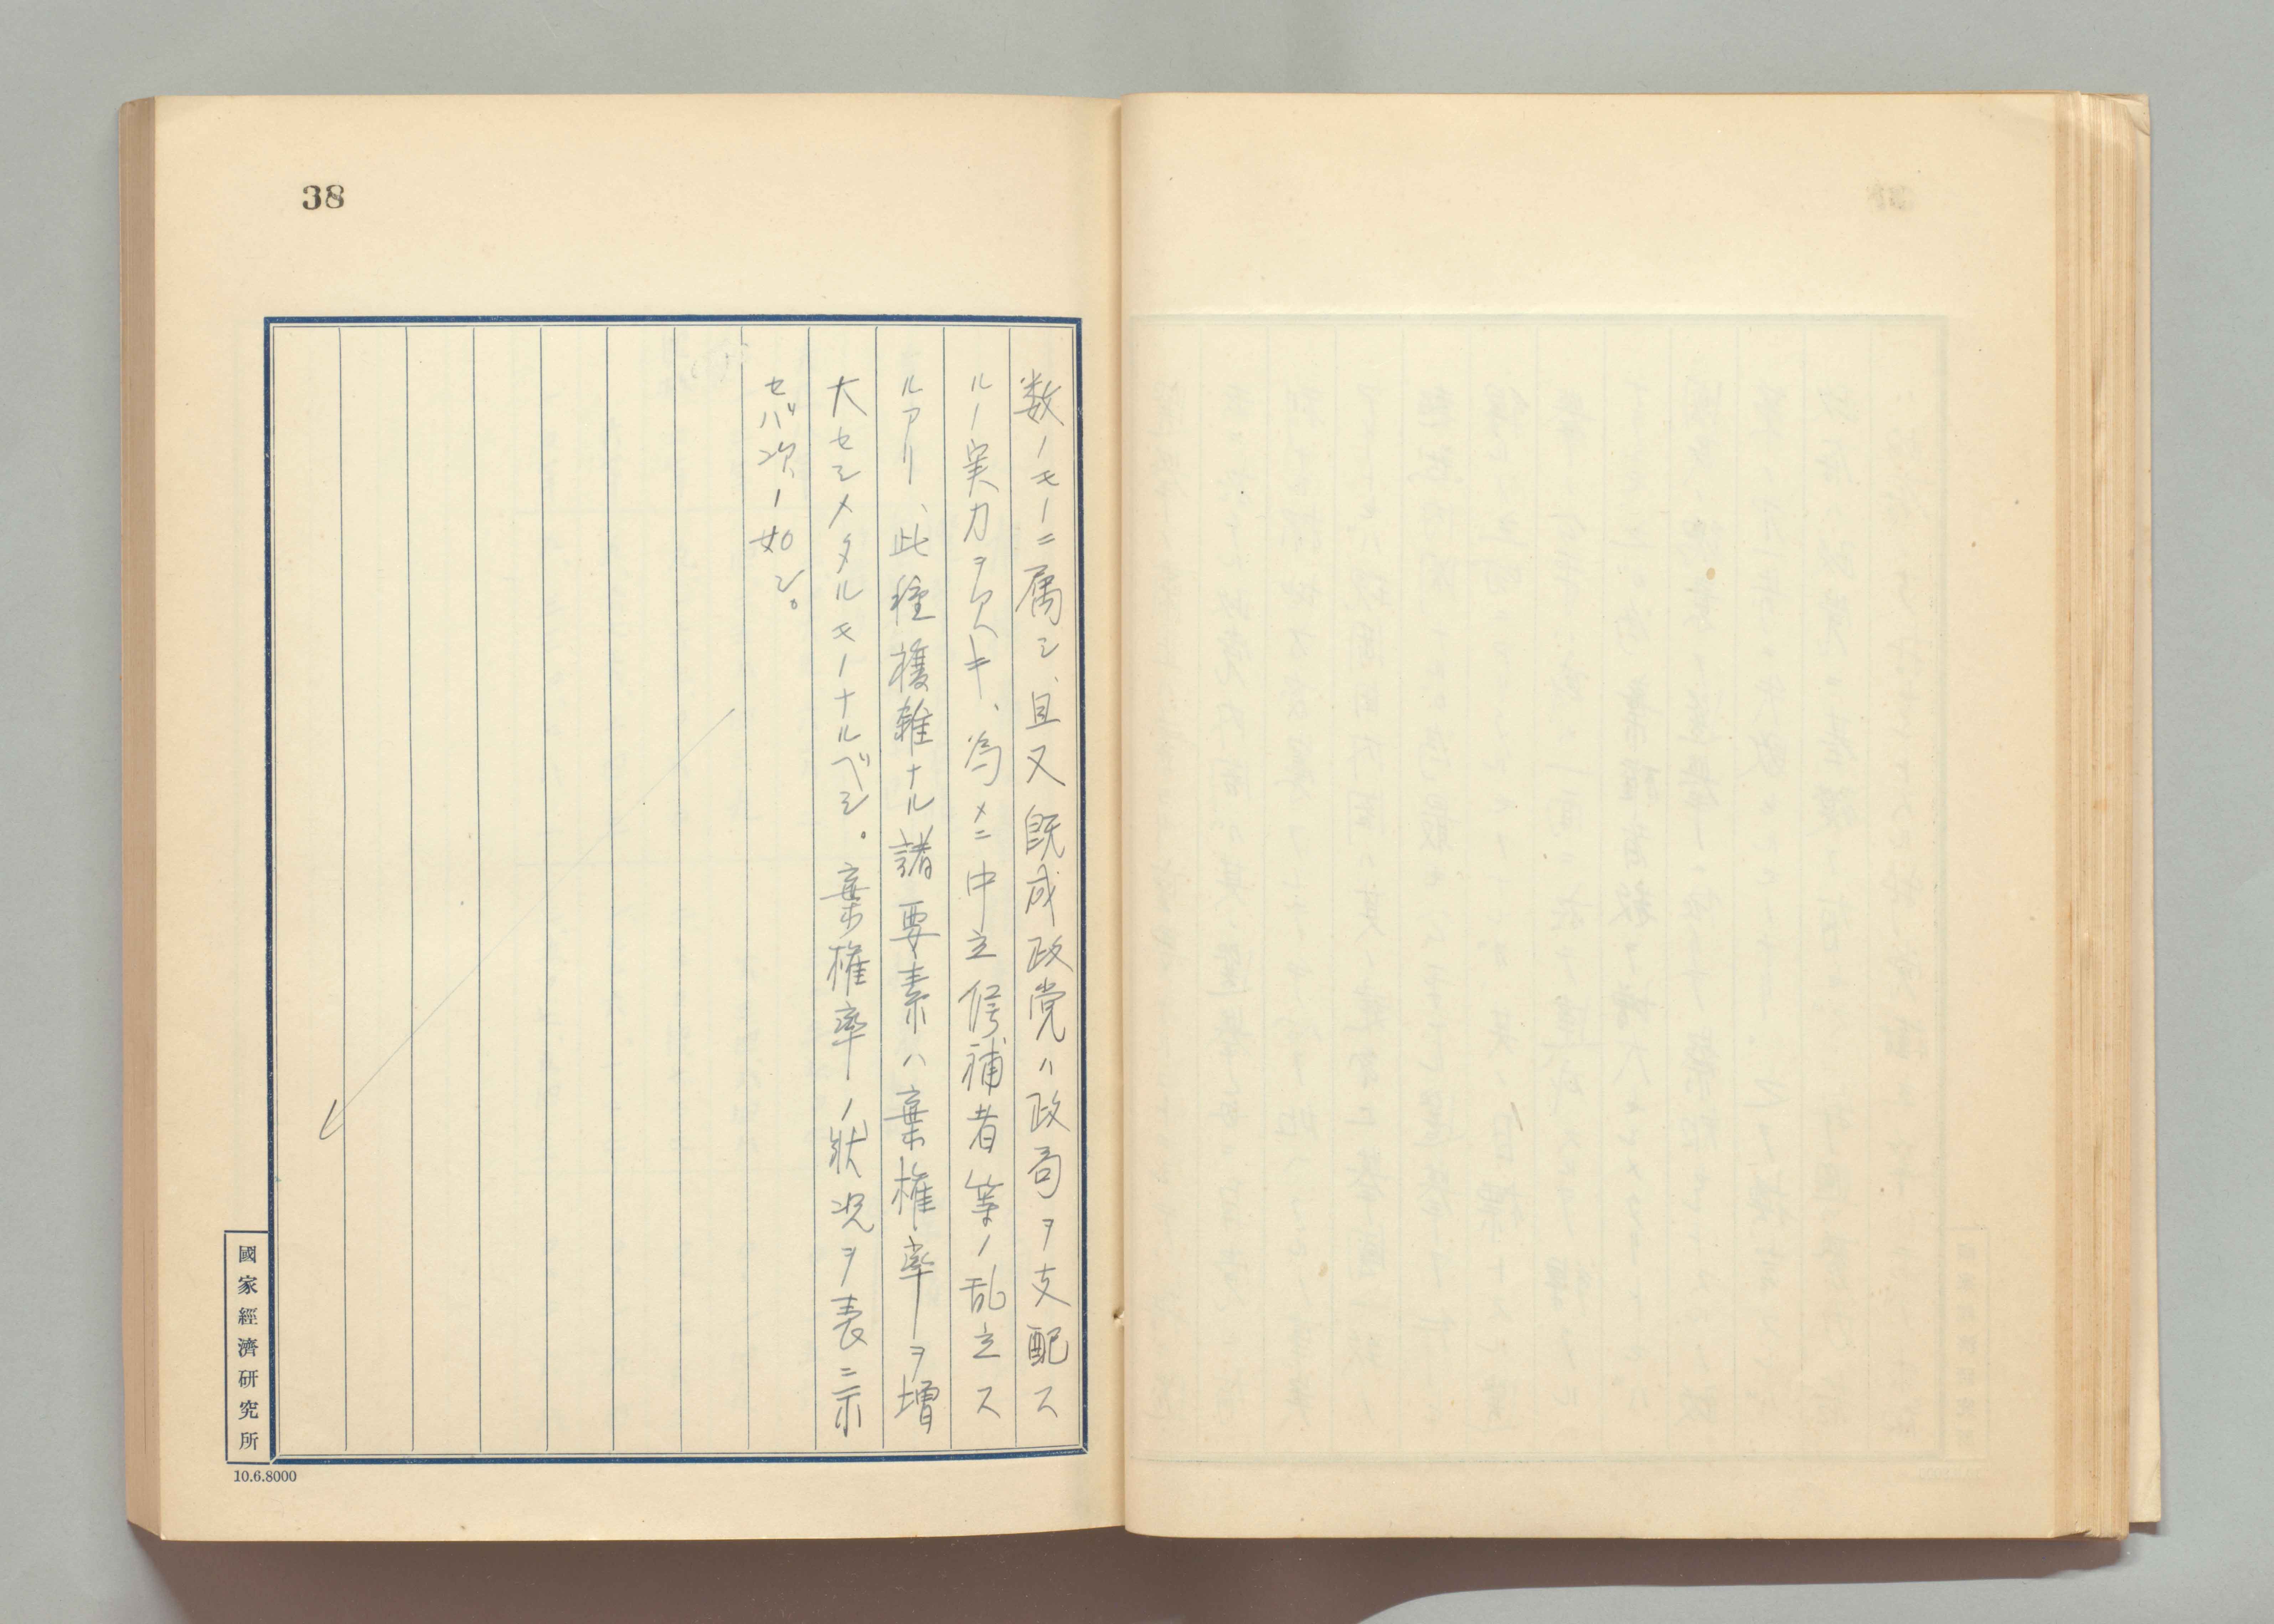 38
数ノモノニ属シ、且又既成政党ハ政局ヲ支配ス
ルノ実力ヲ欠キ、為メニ中立候補者等ノ乱立ス
ルアリ、此種複雑ナル諸要素ハ棄権率ヲ増
大セシメタルモノナルベシ。棄権率ノ状况ヲ表示
セバ次ノ如シ。
國家經濟研究所
10.6.8000